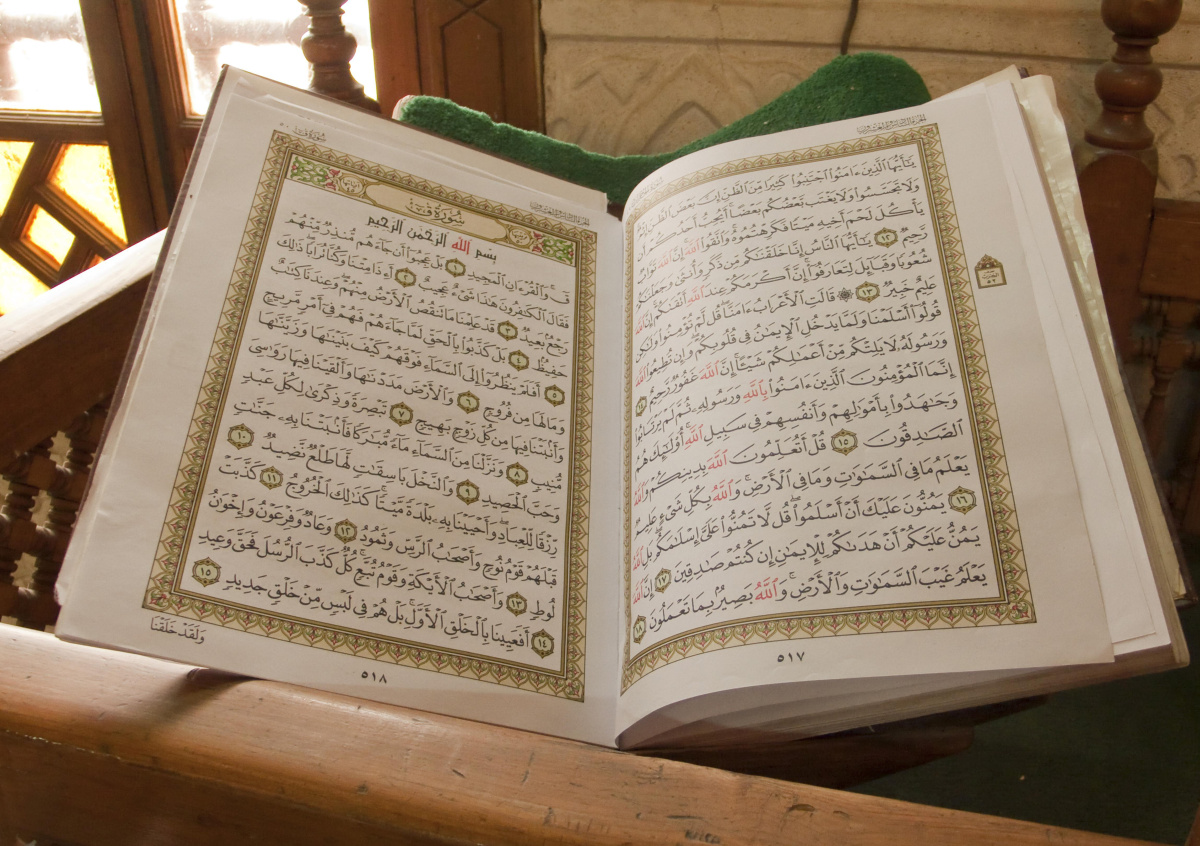 الجزء السادس والعشرون
يَٰٓأَيُّهَا ٱلَّذِينَ ءَامَنُوا۟ ٱجْتَنِبُوا۟ كَثِيرًا مِّنَ ٱلظَّنِّ إِنَّ بَعْضَ ٱلظَّنِّ
وَلَا تَجَسَّسُوا۟ وَلَا يَغْتَب بَّعْضُكُم بَعْضًا ۚ أَيُحِبُّ أَحَدُكُمْ أَن
يَأْكُلَ لَحْمَ أَخِيهِ مَيْتًا فَكَرِهْتُمُوهُ ۚ وَٱتَّقُوا۟ ٱللَّهَ ۚ إِنَّ ٱللَّهَ تَوَّابٌ
رَّحِيمٌ ١٢ يَٰٓأَيُّهَا ٱلنَّاسُ إِنَّا خَلَقْنَٰكُم مِّن ذَكَرٍ وَأُنثَىٰ وَجَعَلْنَٰكُمْ
شُعُوبًا وَقَبَآئِلَ لِتَعَارَفُوٓا۟ ۚ إِنَّ أَكْرَمَكُمْ عِندَ ٱللَّهِ أَتْقَىٰكُمْ ۚ إِنَّ ٱللَّهَ
عَلِيمٌ خَبِيرٌ ١٣ ۞ قَالَتِ ٱلْأَعْرَابُ ءَامَنَّا ۖ قُل لَّمْ تُؤْمِنُوا۟ وَلَٰكِن
قُولُوٓا۟ أَسْلَمْنَا وَلَمَّا يَدْخُلِ ٱلْإِيمَٰنُ فِى قُلُوبِكُمْ ۖ وَإِن تُطِيعُوا۟ ٱللَّهَ
وَرَسُولَهُۥ لَا يَلِتْكُم مِّنْ أَعْمَٰلِكُمْ شَيْـًٔا ۚ إِنَّ ٱللَّهَ غَفُورٌ رَّحِيمٌ ١٤
إِنَّمَا ٱلْمُؤْمِنُونَ ٱلَّذِينَ ءَامَنُوا۟ بِٱللَّهِ وَرَسُولِهِۦ ثُمَّ لَمْ يَرْتَابُوا۟
وَجَٰهَدُوا۟ بِأَمْوَٰلِهِمْ وَأَنفُسِهِمْ فِى سَبِيلِ ٱللَّهِ ۚ أُو۟لَٰٓئِكَ هُمُ
ٱلصَّٰدِقُونَ ١٥ قُلْ أَتُعَلِّمُونَ ٱللَّهَ بِدِينِكُمْ وَٱللَّهُ
يَعْلَمُ مَا فِى ٱلسَّمَٰوَٰتِ وَمَا فِى ٱلْأَرْضِ ۚ وَٱللَّهُ بِكُلِّ شَىْءٍ عَلِيمٌ
١٦ يَمُنُّونَ عَلَيْكَ أَنْ أَسْلَمُوا۟ ۖ قُل لَّا تَمُنُّوا۟ عَلَىَّ إِسْلَٰمَكُم ۖ بَلِ ٱللَّهُ
يَمُنُّ عَلَيْكُمْ أَنْ هَدَىٰكُمْ لِلْإِيمَٰنِ إِن كُنتُمْ صَٰدِقِينَ ١٧ إِنَّ ٱللَّهَ
يَعْلَمُ غَيْبَ ٱلسَّمَٰوَٰتِ وَٱلْأَرْضِ ۚ وَٱللَّهُ بَصِيرٌۢ بِمَا تَعْمَلُونَ ١٨
٥١٧
سُورَةُ قٓ
سُورَةُ قٓ
بِسْمِ ٱللَّهِ ٱلرَّحْمَٰنِ ٱلرَّحِيمِ
قٓ ۚ وَٱلْقُرْءَانِ ٱلْمَجِيدِ ١ بَلْ عَجِبُوٓا۟ أَن جَآءَهُم مُّنذِرٌ مِّنْهُمْ
فَقَالَ ٱلْكَٰفِرُونَ هَٰذَا شَىْءٌ عَجِيبٌ ٢ أَءِذَا مِتْنَا وَكُنَّا تُرَابًا ۖ ذَٰلِكَ
رَجْعٌۢ بَعِيدٌ ٣ قَدْ عَلِمْنَا مَا تَنقُصُ ٱلْأَرْضُ مِنْهُمْ ۖ وَعِندَنَا كِتَٰبٌ
حَفِيظٌۢ ٤ بَلْ كَذَّبُوا۟ بِٱلْحَقِّ لَمَّا جَآءَهُمْ فَهُمْ فِىٓ أَمْرٍ مَّرِيجٍ
٥ أَفَلَمْ يَنظُرُوٓا۟ إِلَى ٱلسَّمَآءِ فَوْقَهُمْ كَيْفَ بَنَيْنَٰهَا وَزَيَّنَّٰهَا
وَمَا لَهَا مِن فُرُوجٍ ٦ وَٱلْأَرْضَ مَدَدْنَٰهَا وَأَلْقَيْنَا فِيهَا رَوَٰسِىَ
وَأَنۢبَتْنَا فِيهَا مِن كُلِّ زَوْجٍۭ بَهِيجٍ ٧ تَبْصِرَةً وَذِكْرَىٰ لِكُلِّ عَبْدٍ
مُّنِيبٍ ٨ وَنَزَّلْنَا مِنَ ٱلسَّمَآءِ مَآءً مُّبَٰرَكًا فَأَنۢبَتْنَا بِهِۦ جَنَّٰتٍ
وَحَبَّ ٱلْحَصِيدِ ٩ وَٱلنَّخْلَ بَاسِقَٰتٍ لَّهَا طَلْعٌ نَّضِيدٌ ١٠
رِّزْقًا لِّلْعِبَادِ ۖ وَأَحْيَيْنَا بِهِۦ بَلْدَةً مَّيْتًا ۚ كَذَٰلِكَ ٱلْخُرُوجُ ١١ كَذَّبَتْ
قَبْلَهُمْ قَوْمُ نُوحٍ وَأَصْحَٰبُ ٱلرَّسِّ وَثَمُودُ ١٢ وَعَادٌ وَفِرْعَوْنُ وَإِخْوَٰنُ
لُوطٍ ١٣ وَأَصْحَٰبُ ٱلْأَيْكَةِ وَقَوْمُ تُبَّعٍ ۚ كُلٌّ كَذَّبَ ٱلرُّسُلَ فَحَقَّ وَعِيدِ
١٤ أَفَعَيِينَا بِٱلْخَلْقِ ٱلْأَوَّلِ ۚ بَلْ هُمْ فِى لَبْسٍ مِّنْ خَلْقٍ جَدِيدٍ ١٥
وَلَقَدْ خَلَقْنَا
٥١٨